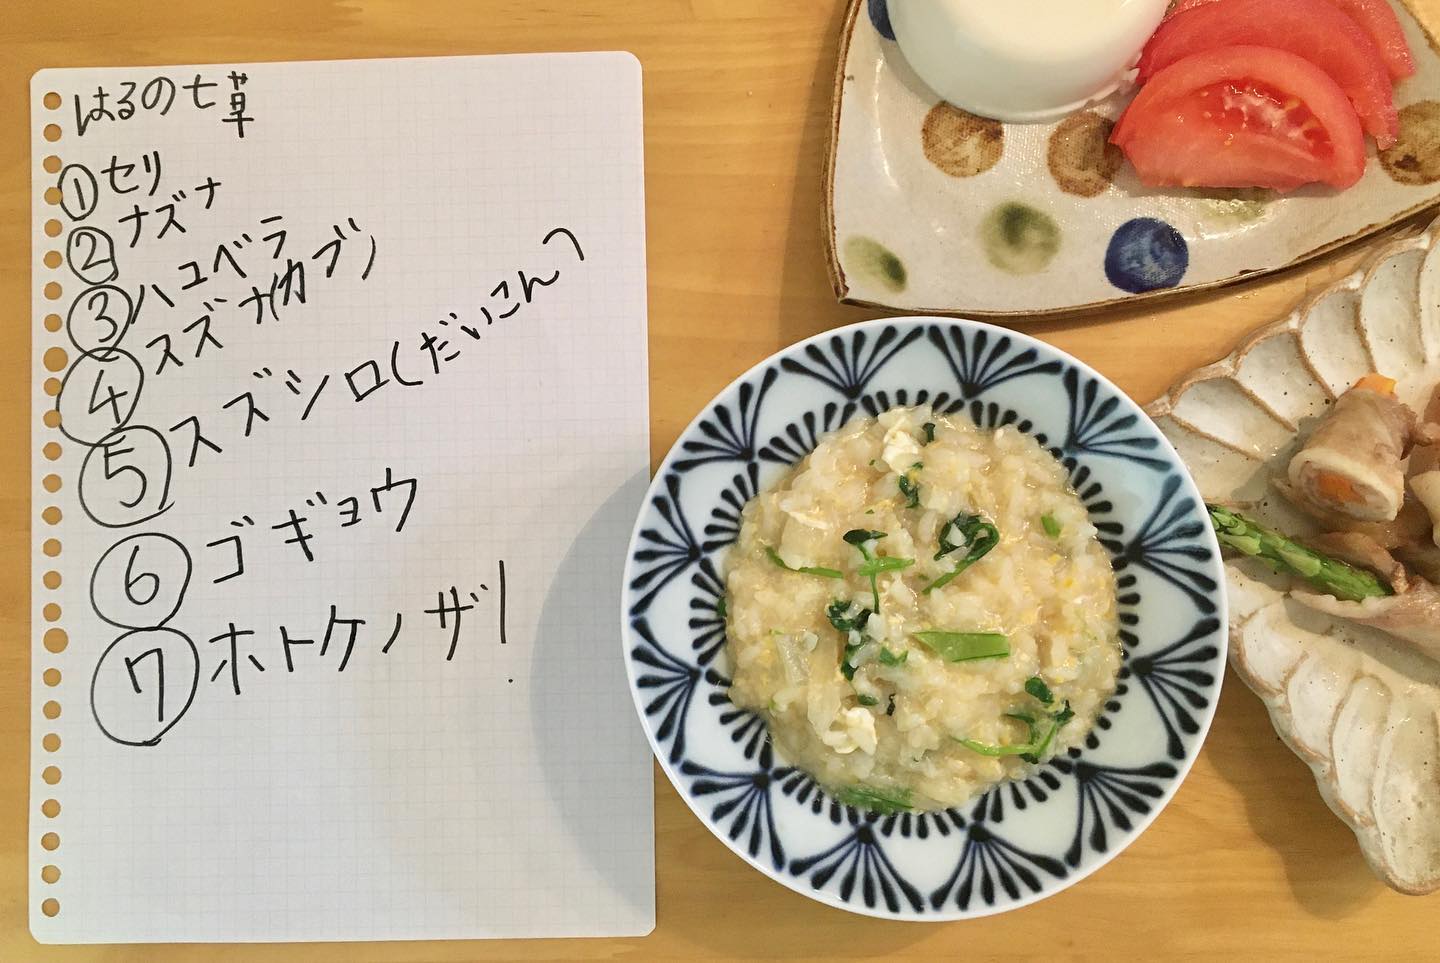 はるの七草
①セリ
②ナズナ
③ハュベラ
④スズナ(カブ)
⑤スズシロ(だいこん)
⑥ゴギョウ
⑦ホトケノザ!